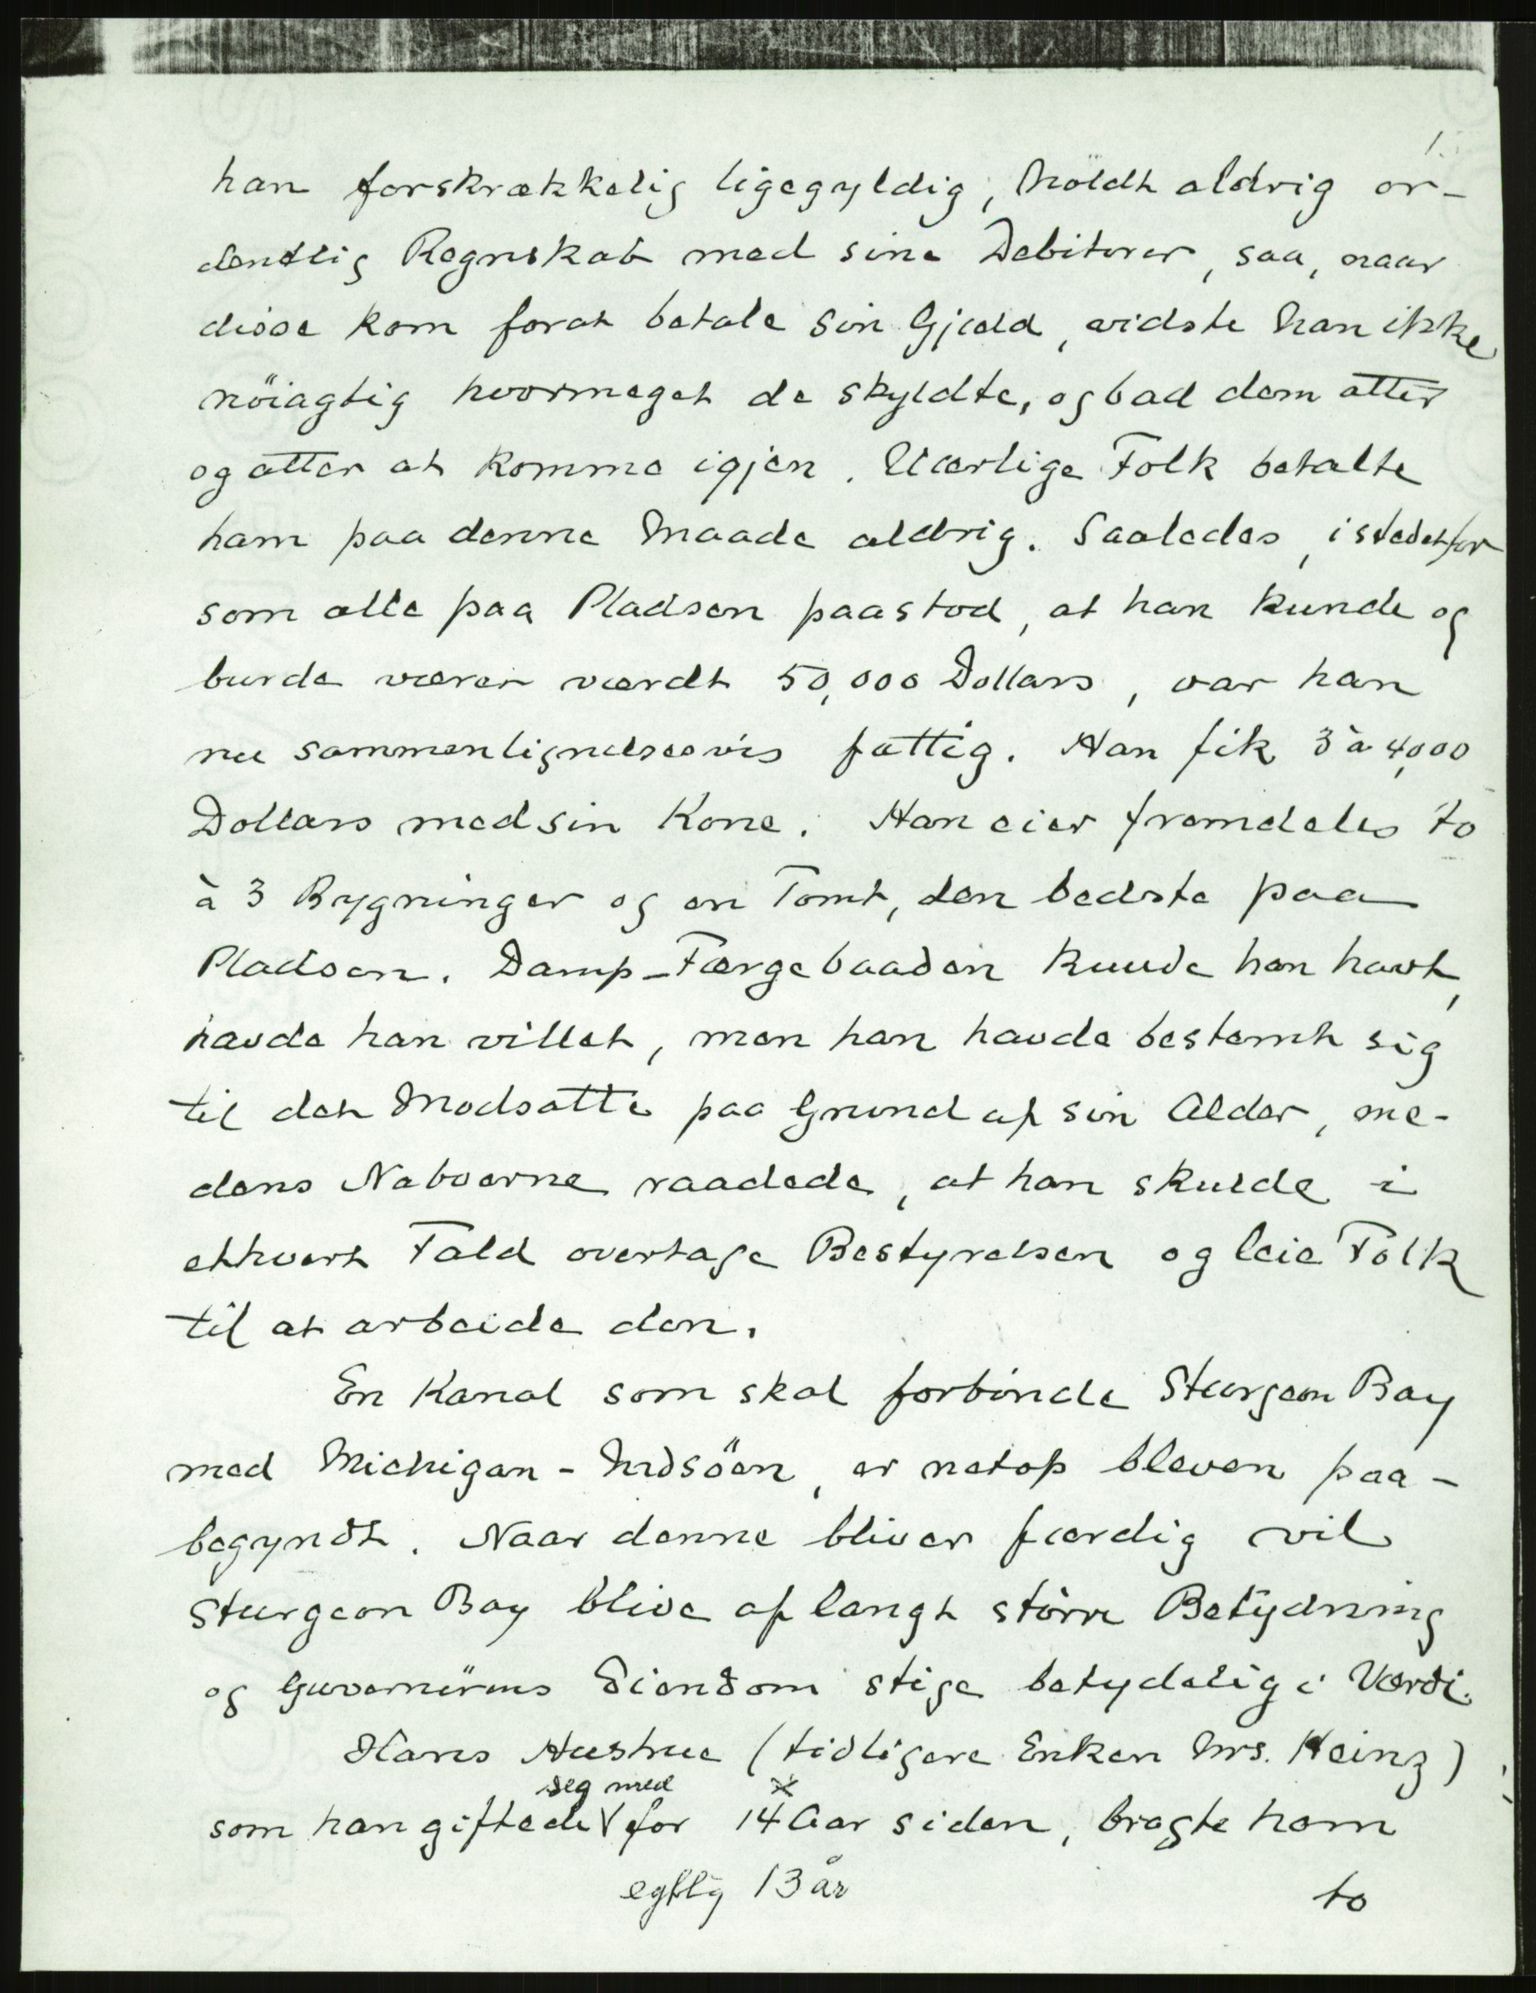 han forskrækkelig ligegyldig, holdt aldrig or-
dentlig Regnskab med sine Debitorer, saa, naar
disse kom forat betale sin Gjæld, vidste han ikke
nöiagtig hvormeget de skyldte, og bad dem atter
og atter at komme igjen. Uærlige Folk betalte
ham paa denne Maade aldrig. Saaledes, istedetfor
som alle paa Pladsen paastod, at han kunde og
burde være værdt 50,000 Dollars, var han
nu sammenligndsesvis fattig. Han fik 3 à 4,000
Dollars med sin Kone. Han eier fremdeles to
à 3 Bygninger og en Tomt, den bedste paa
Pladsen. Damp-Færgebaaden kunde han havt,
havde han villet, men han havde bestemt sig
til det Modsatte paa Grund af sin Alder, me-
dens Naboerne raadede, at han skulde i
ethvert Fald overtage Bestyrelsen og leie Folk
til at arbeide den.
En Kanal som skal forbinde Sturgeon Bay
med Michigan-Indsöen, er netop bleven paa-
begyndt. Naar denne bliver færdig vil
Sturgeon Bay blive af langt större Betydning
og Guvernörens Eiendom stige betydelig i Værdi.
Hans Hustrue (tidligere Enken Mrs. Heinz)
seg med x
som han giftede V for 14 Aar siden, bragte ham
egtlig 13 år
to